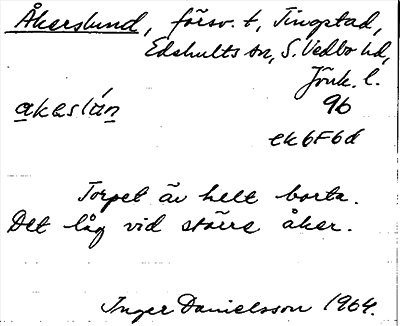 Åkerslund, försv. t, Tingstad,
Edshults sn, S. Vedbo hd,
Jönk. l.
akaslún 96
ek6F6d
Torpet är helt borta.
Det låg vid större åker.
Inger Danielsson 1964.